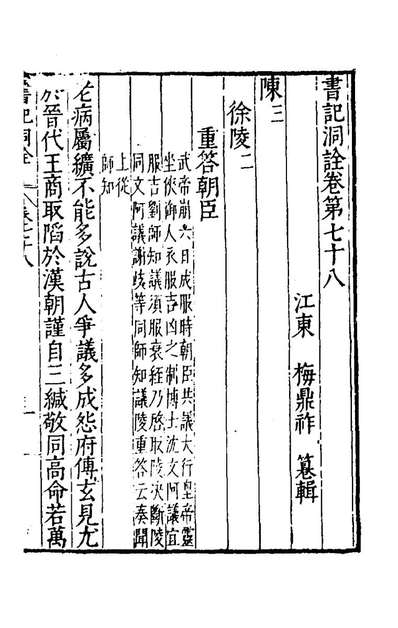 書記洞詮卷第七十八
江東　梅鼎祚　纂輯
陳三
徐陵二
重答朝臣
武帝崩六日成服時朝臣共議大行皇帝靈
坐俠御人衣服吉凶之制博士沈文阿議宜
服吉劉師知議須服衰絰乃啓取陵決斷陵
同文阿議謝岐等同師知議陵重答云奏聞
上從
師知
老病屬纊不能多說古人爭議多成怨府傅玄見尤
於晉代王商取陷於漢朝謹自三緘敬同高命若萬